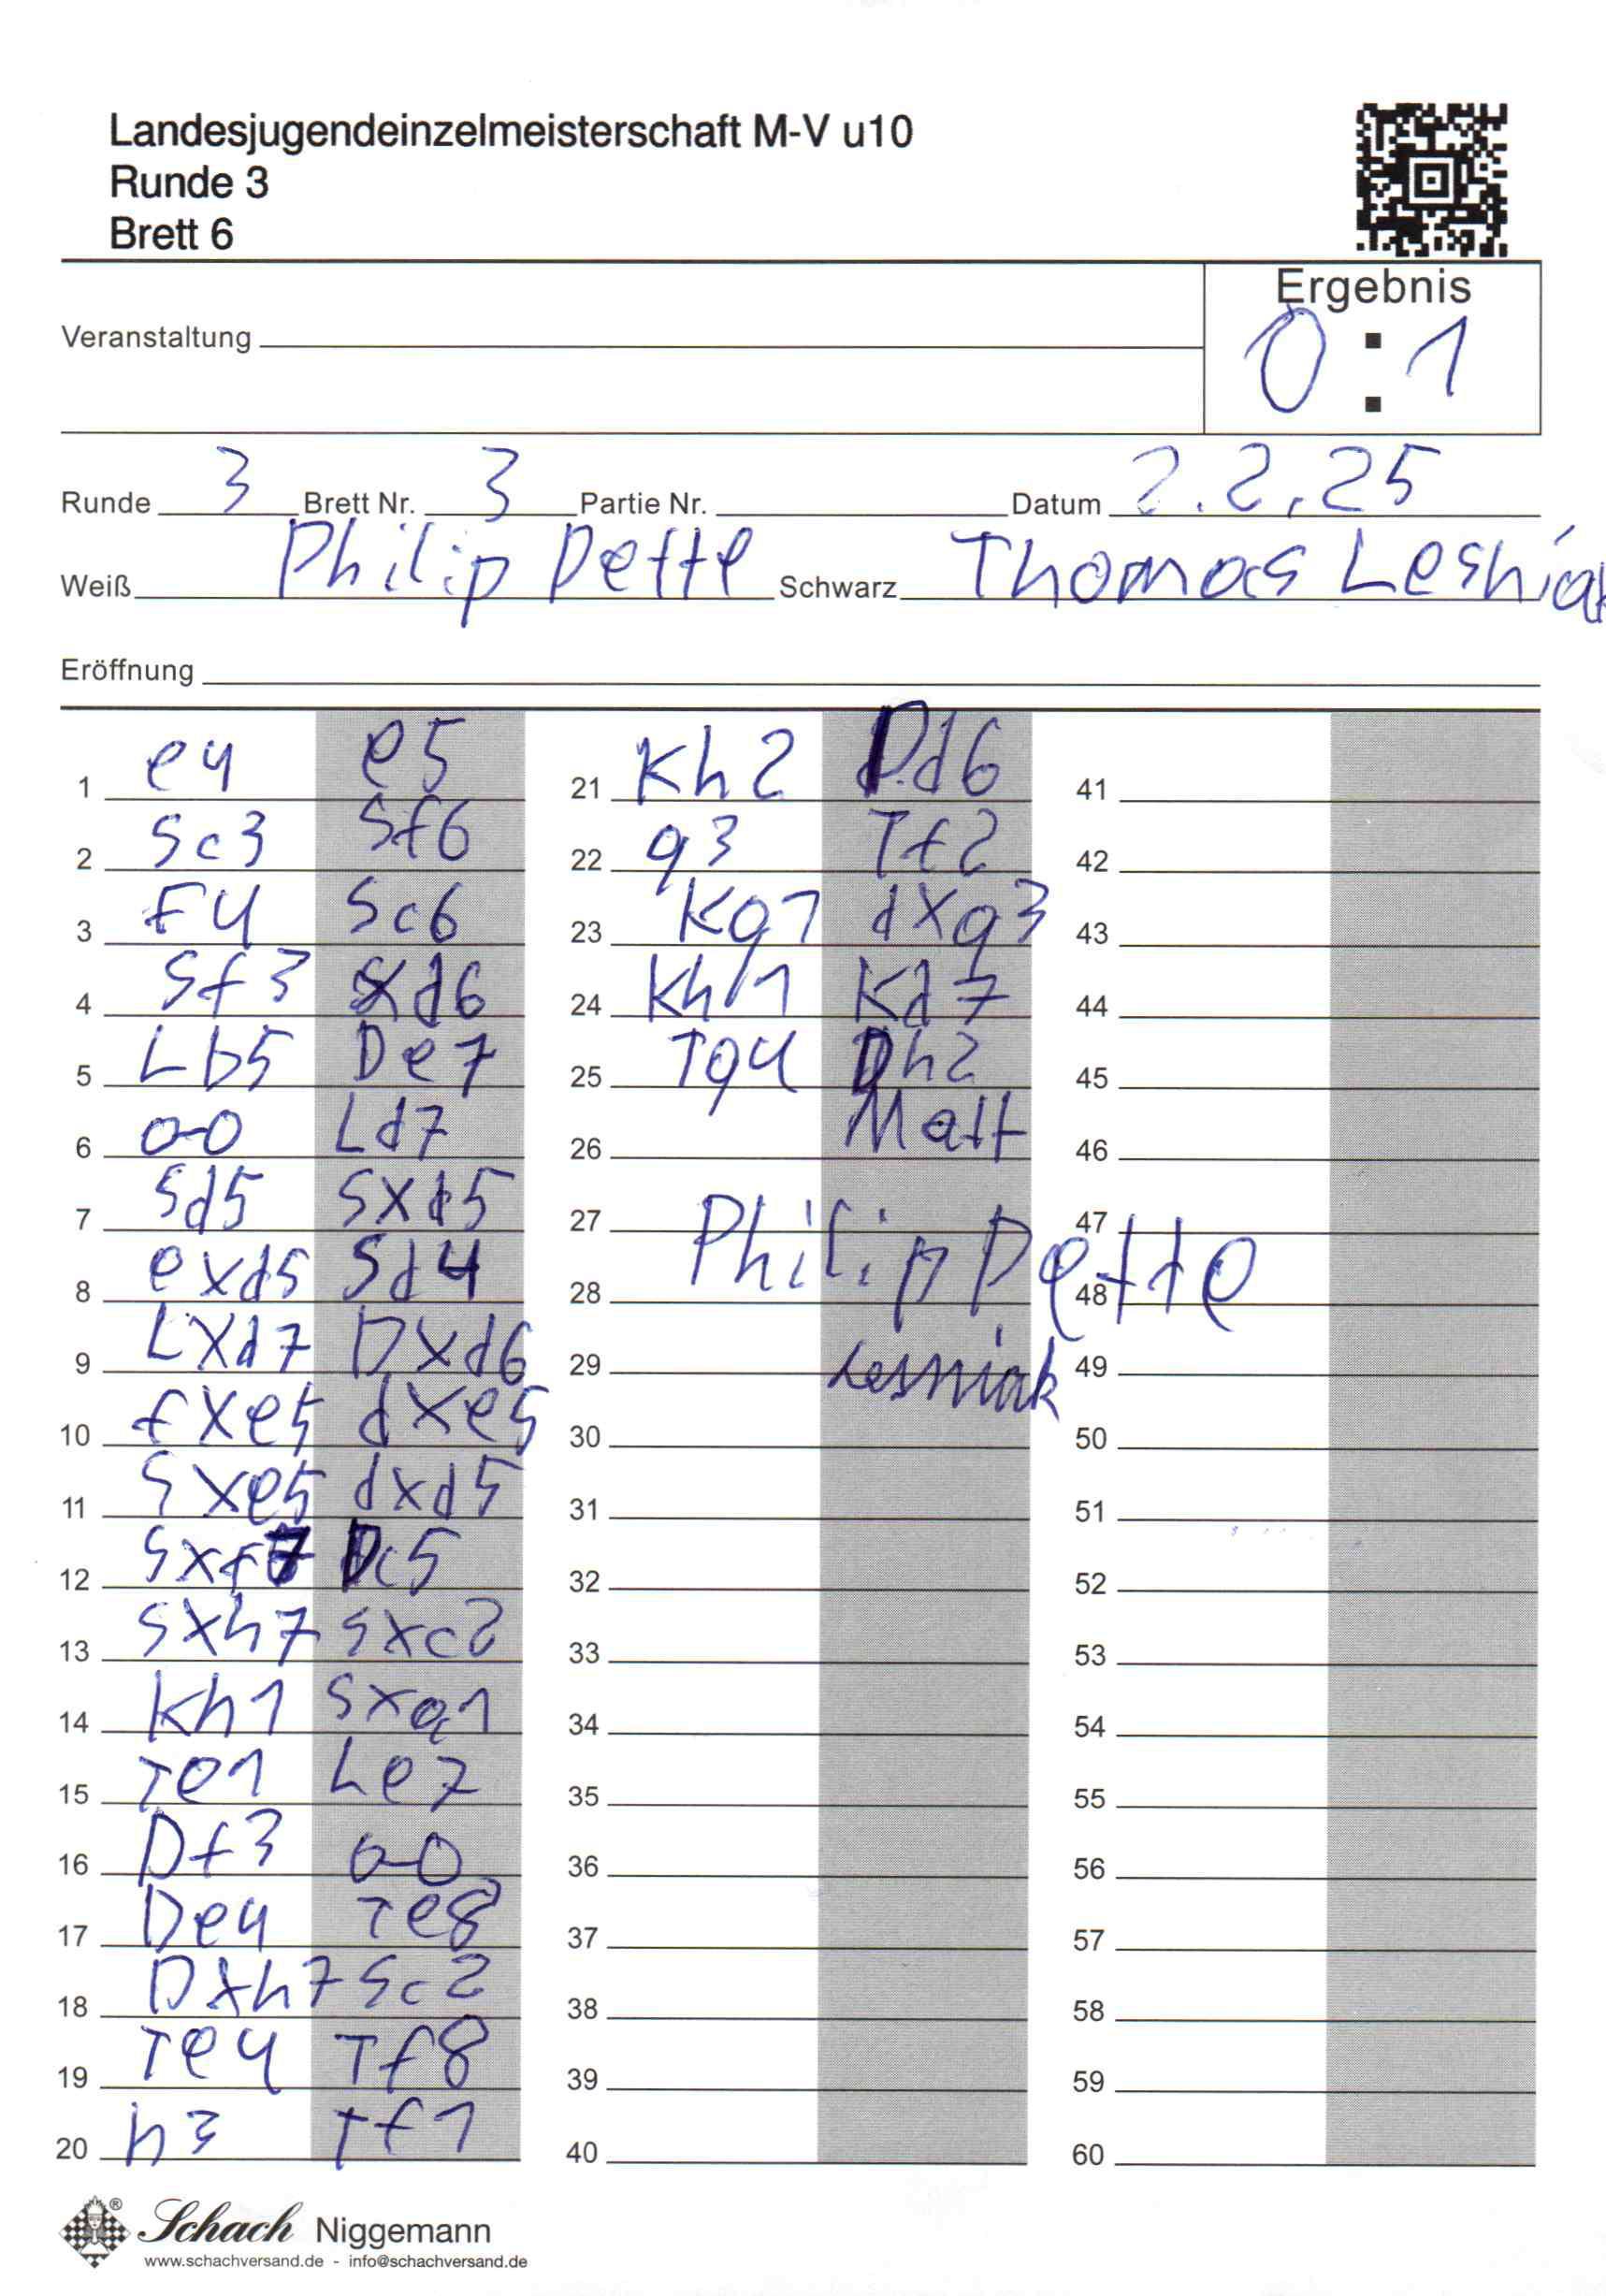 Landesjugendeinzelmeisterschaft M-V u10
Runde 3
Brett 6
Ergebnis
0 : 1
Veranstaltung
Runde 3 Brett Nr. 3 Partie Nr. Datum 2.2.25
Weiß Philip Dette Schwarz Thomas Lesniak
Eröffnung
1 e4 e5 21 Kh2 Dd6 41
2 Sc3 Sf6 22 g3 Tf2 42
3 F4 Sc6 23 Kg1 dxg3 43
4 Sf3 d6 24 Kh1 Kd7 44
5 Lb5 De7 25 Tg4 Dh2 45
6 0-0 Ld7 26 Matt 46
7 Sd5 Sxd5 27 47
8 exd5 Sd4 28 Philip Dette 48
9 Lxd7 Dxd6 29 Lesniak 49
10 fxe5 dxe5 30 50
11 Sxe5 dxd5 31 51
12 Sxf7 Dc5 32 52
13 Sxh7 Sxc2 33 53
14 Kh1 Sxa1 34 54
15 Te1 Le7 35 55
16 Df3 0-0 36 56
17 De4 Te8 37 57
18 Dxh7 Sc2 38 58
19 Te4 Tf8 39 59
20 h3 Tf1 40 60
Schach Niggemann
www.schachversand.de - info@schachversand.de